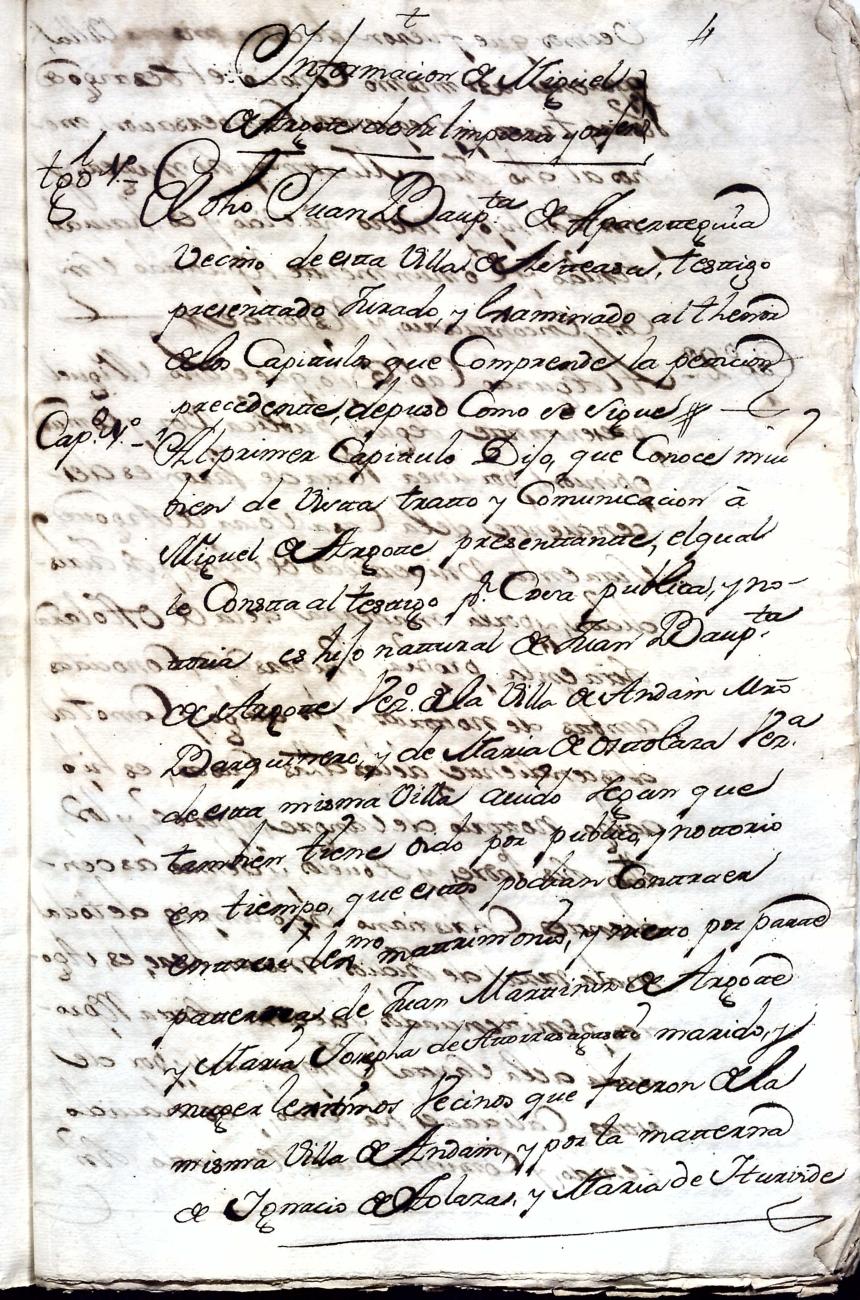 4
Informacion de Miguel
de Argote de su limpieza y origen
tgo N.º 1
El dho Juan Baup.ta de Aparrteguia
Vecino de esta Villa de Asteasu, testigo
presenttado Jurado, y Examinado al thenor
de los Capitulos que Comprende la peticion
precedente, depuso Como se sigue
Cap.º N.º 1
Al primer Capitulo Dijo, que Conoce mui
bien de Vista tratto y Comunicacion à
Miguel de Argotte, presenttante, el qual
le Consta al testigo p.r Cosa publica, y no-
toria es hijo natural de Juan Baup.ta
de Argotte Vez.º de la Villa de Andain Mro
Barquinero, y de Maria de Ottolaza Vez.a
de esta misma Villa avido segun que
tambien tiene oido por publico, y nottorio
en tiempo, que estos podian Contraer
entre si lex.mo mattrimonio, y nieto por partte
patterna de Juan Martinez de Argotte
y Maria Josepha de marido, y
muger lexitimos Vecinos que fueron de la
misma Villa de Andain, y por la matterna
de Ignacio de Atolaza, y Maria de Iturvide